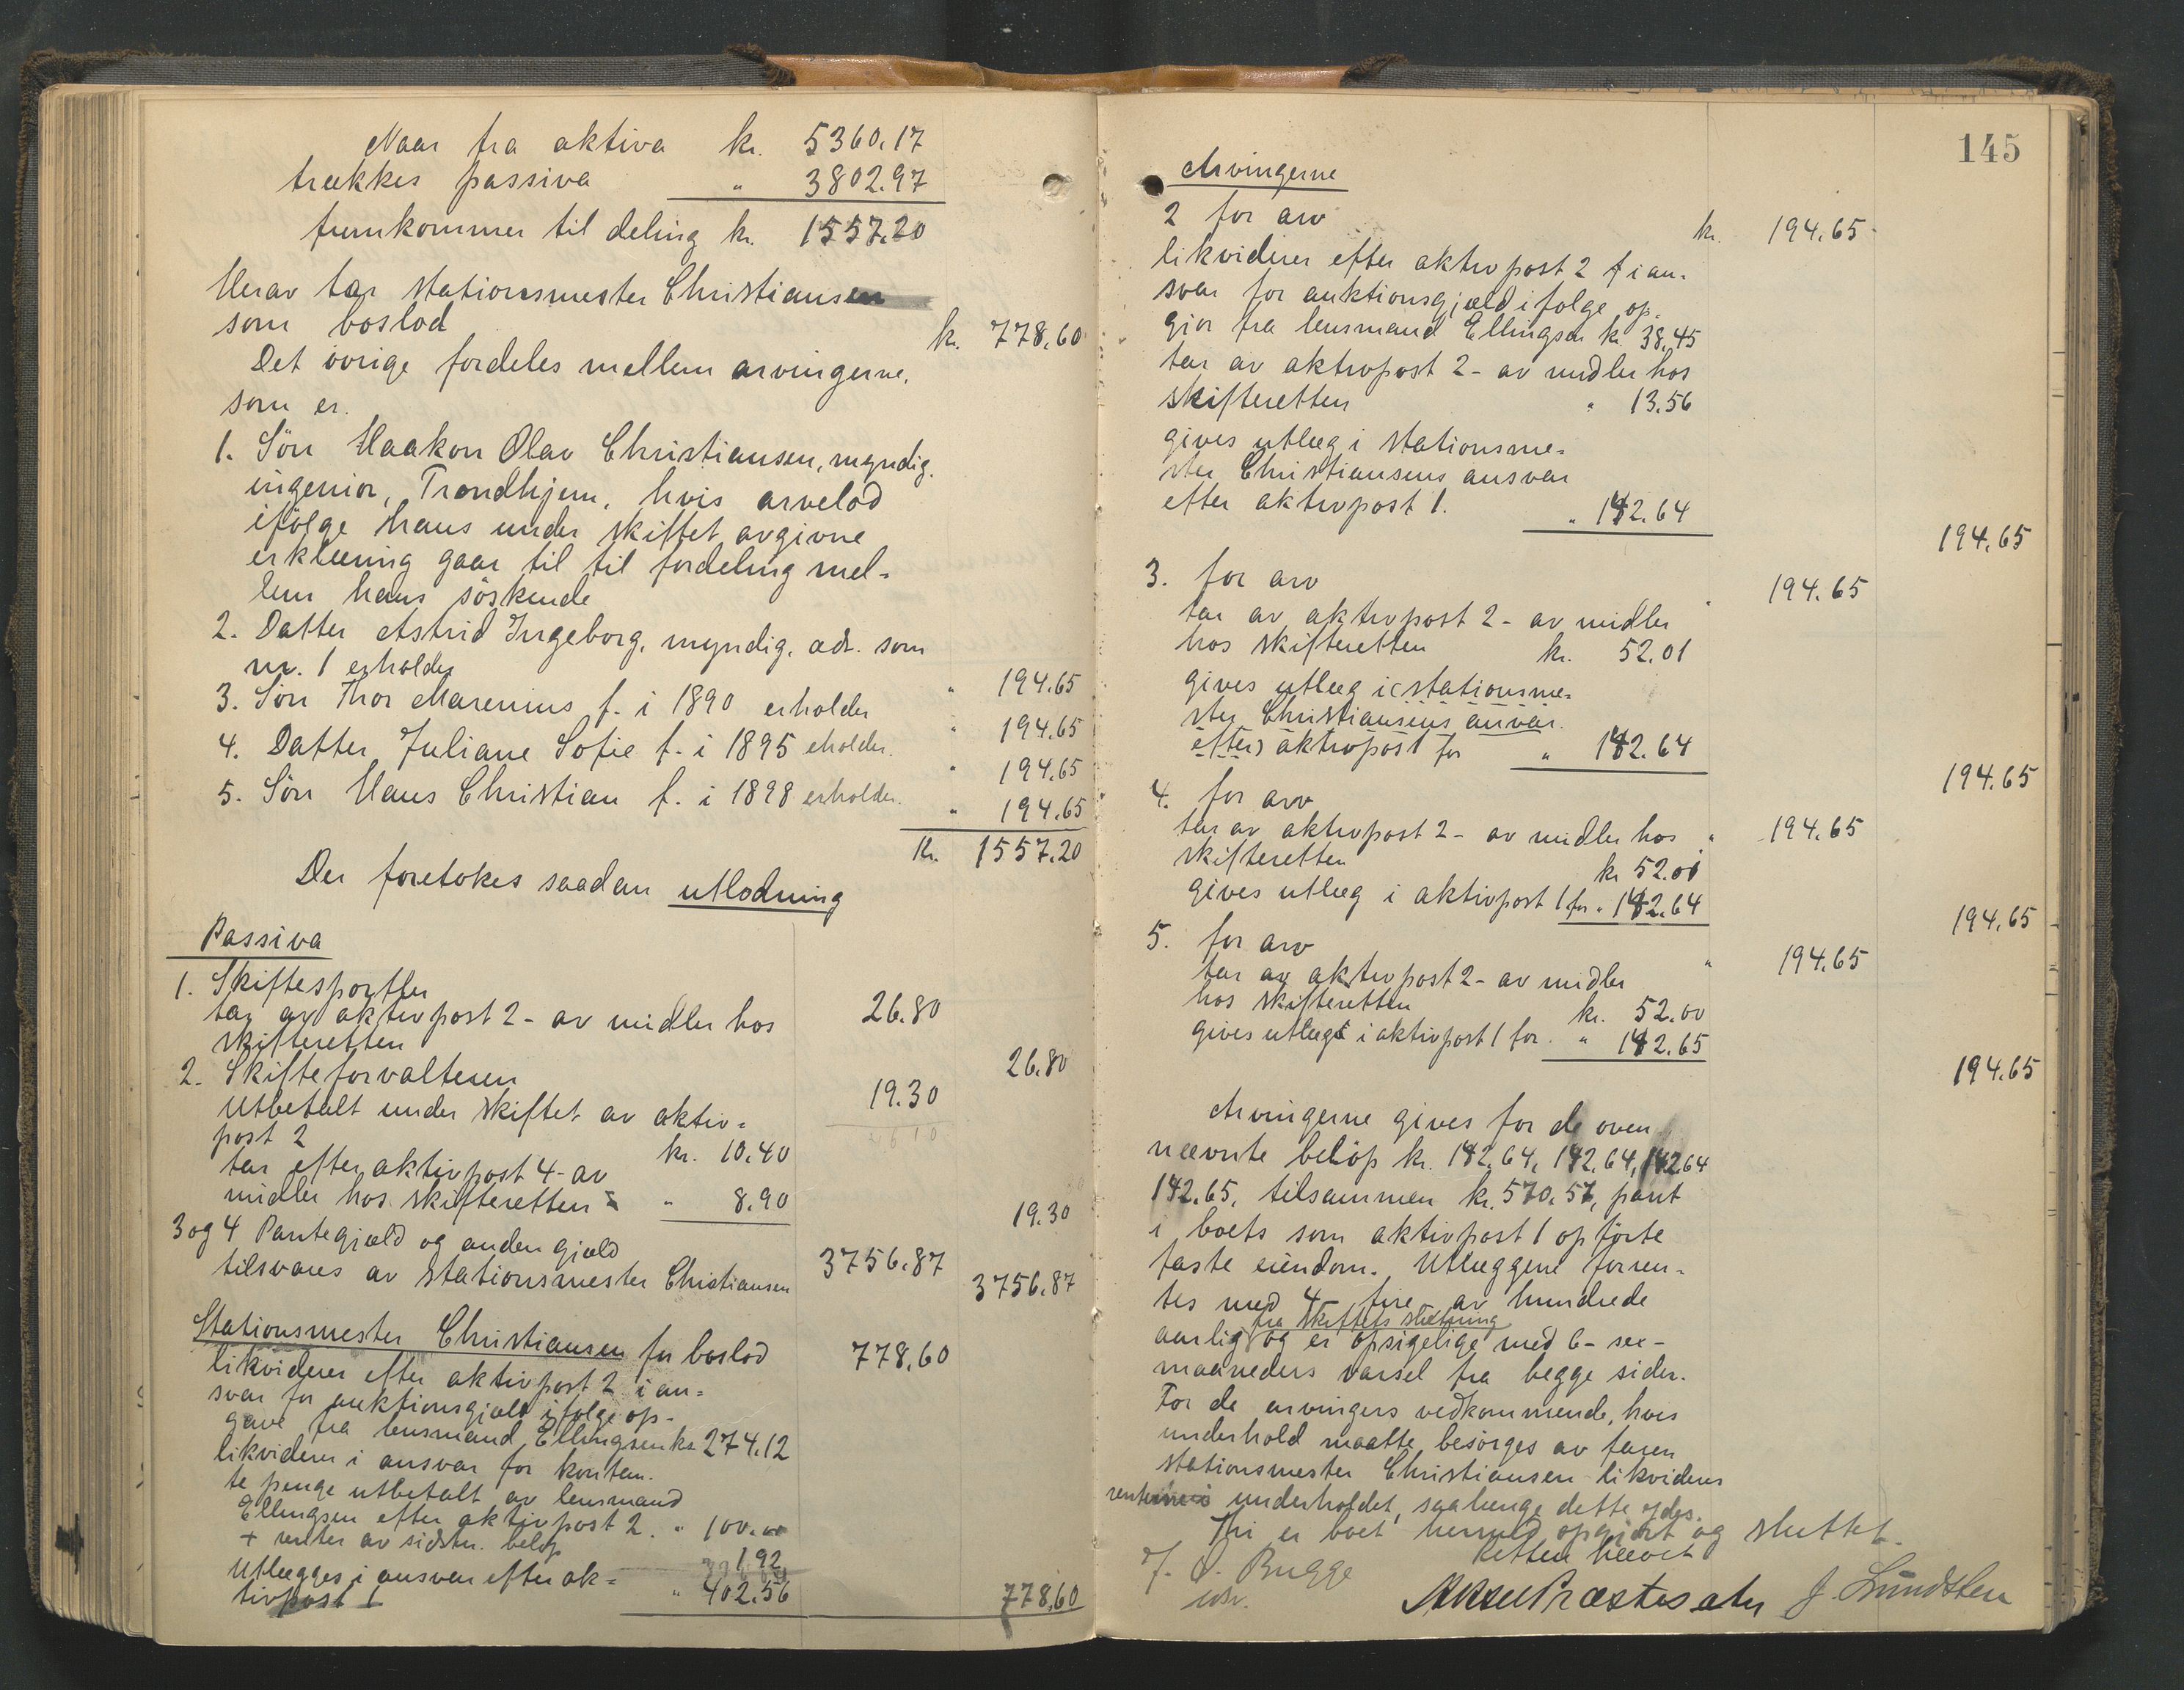 Naar fra aktiva kr. 5360.17
trækkes passiva " 3802.97
fremkommer til deling kr. 1557.20
Herav tar stationsmester Christiansen
som boslod kr. 778.60
Det övrige fordeles mellem arvingerne,
som er.
1. Sön Haakon Olav Christiansen, myndig.
ingeniör, Trondhjem, hvis arvelod
ifölge hans under skiftet avgivne
erklæring gaar til til fordeling mel-
lem hans söskende
2. Datter Astrid Ingeborg, myndig, adr. som
nr. 1 erholder " 194.65
3. Sön Thor Marenius f. i 1890 erholder " 194.65
4. Datter Juliane Sofie f. i 1895 eholder. " 194.65
5. Sön Hans Christian f. i 1898 erholder. " 194.65
Kr. 1557.20
Der foretokes saadan utlodning
Passiva
1. Skiftesportler 26.80
tar av aktivpost 2 - av midler hos
skifteretten 26.80
2. Skifteforvalteren 19.30
Utbetalt under skiftet av aktiv-
post 2 kr. 10.40
tar efter aktivpost 4 - av
midler hos skifteretten " 8.90 19.30
3 og 4 Pantegjæld og anden gjæld 3756.87
tilsvares av stationsmester Christiansen 3756.87
Stationsmester Christiansen for boslod 778.60
likviderer efter aktivpost 2 i an-
svar for auktionsgjæld ifølge op-
gave fra lensmand Ellingsen kr. 274.12
likviderer i ansvar for kontan-
te penge utbetalt av lensmand
Ellingsen efter aktivpost 2. " 100.00
+ renter av sidstn. belöp 1.92
Utlægges i ansvar efter ak-
tivpost 1 " 402.56 778.60
145
Arvingerne
2 for arv kr. 194.65
likviderer efter aktivpost 2 i an-
svar for auktionsgjæld ifølge op-
gjör fra lensmand Ellingsen kr. 38.45
tar av aktivpost 2 - av midler hos
skifteretten " 13.56
gives utlæg i stationsme-
ster Christiansens ansvar
efter aktivpost 1. " 142.64
194.65
3. for arv " 194.65
tar av aktivpost 2 - av midler
hos skifteretten kr. 52.01
gives utlæg i (stationsme-
ster Christiansens anvar
efter) aktivpost 1 for " 142.64
194.65
4. for arv " 194.65
tar av aktivpost 2 - av midler hos
skifteretten kr 52.01
gives utlæg i aktivpost 1 for " 142.64
194.65
5. for arv " 194.65
tar av aktivpost 2 - av midler
hos skifteretten kr. 52.00
gives utlæg i aktivpost 1 for " 142.65
194.65
Arvingerne gives for de oven
nævnte belöp kr. 142.64, 142.64, 142.64
142.65, tilsammen kr. 570.57, pant
i boets som aktivpost 1 opförte
faste eiendom. Utlæggene forren-
tes med 4 - fire - av hundrede
fra skiftets slutning
aarlig og er opsigelige med 6 - sex -
maaneders varsel fra begge sider.
For de arvingers vedkommende, hvis
underhold maatte besörges av faren
stationsmester Christiansen likvideres
renterne i underholdet, saalænge dette ydes.
Thi er boet hermed opgjort og sluttet.
Retten hævet
J. O. Bugge
usv.
Aksel Præstesater J. Lundsten